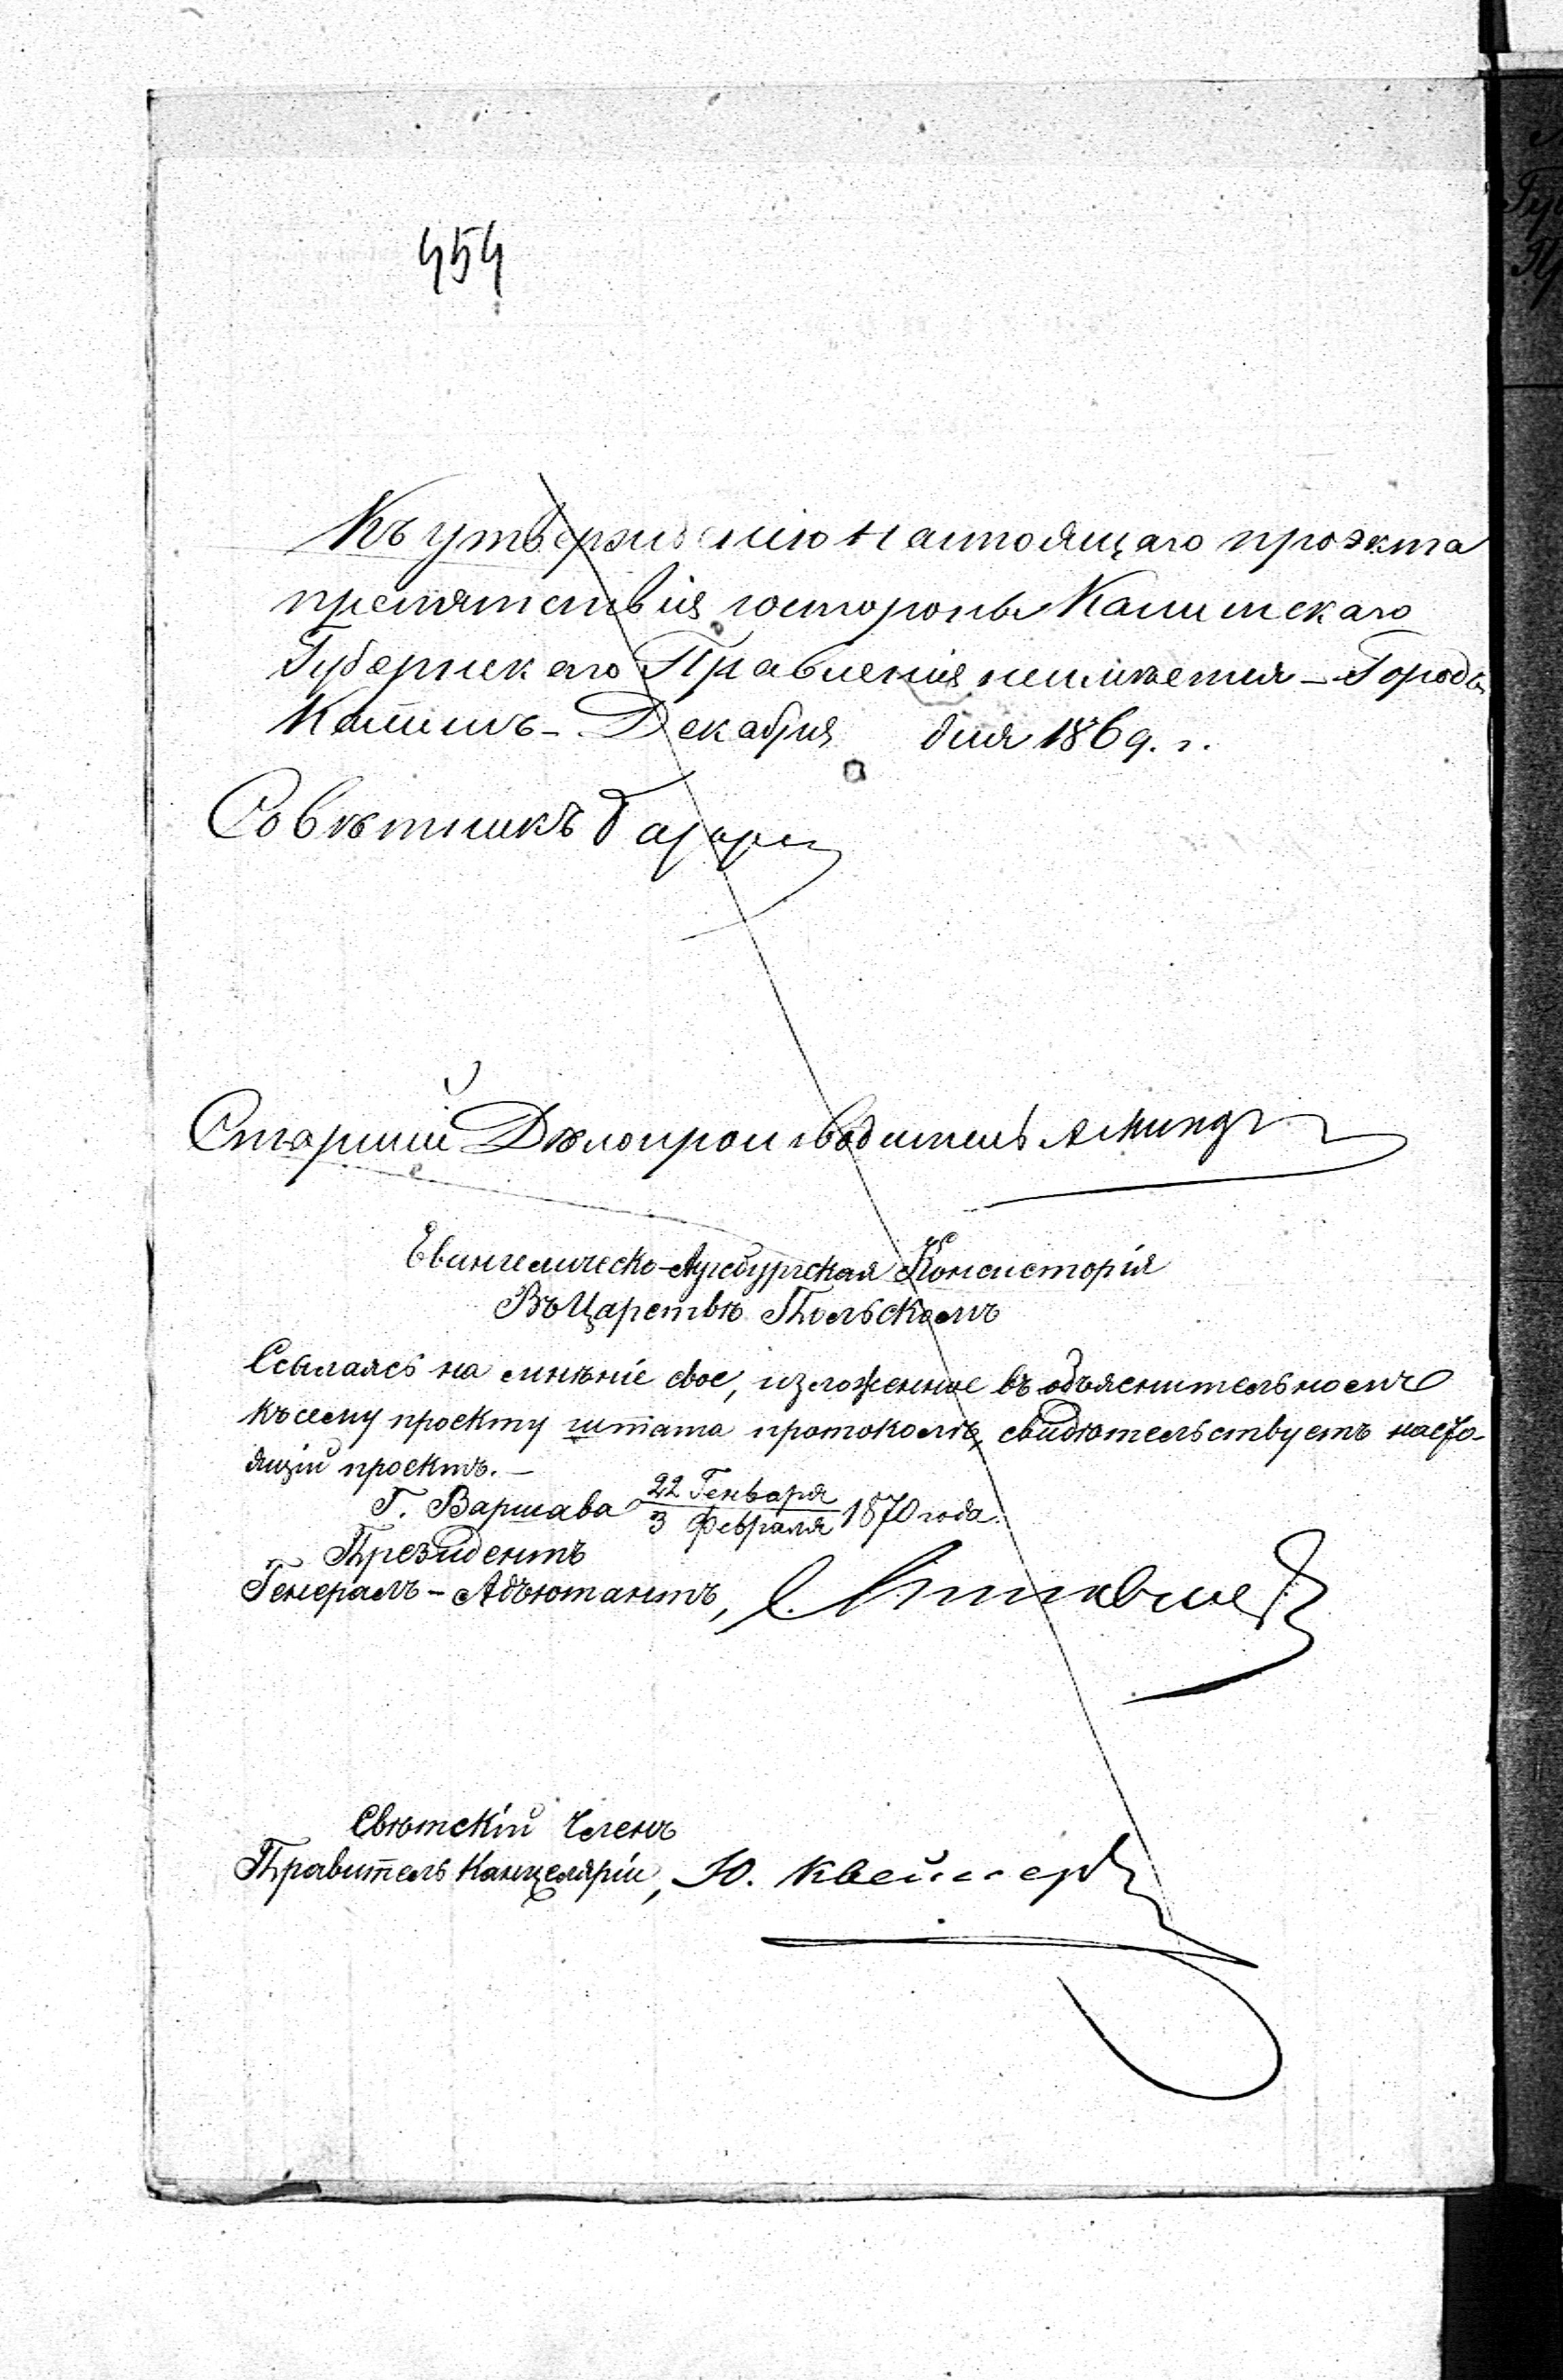 454
Къ утвержденію настоящаго проэкта
препятствія состороны Калишскаго
Губернскаго Правленія неимѣется – Городъ
Калишъ – Декабря дня 1869. г.
Совѣтникъ
Старшій Дѣлопроизводитель
Евангелическо-Аугсбургская Консисторія
Въ Царствѣ Польскомъ
Ссылаясь на мнѣніе свое, изложенное въ объяснительномъ
къ сему проекту штата протоколѣ, свидѣтельствуетъ насто-
ящій проектъ. –
Г. Варшава 22 Генваря / 3 Февраля 1870 года.
Президентъ
Генералъ – Адъютантъ,
Свѣтскій Членъ
Правитель Канцеляріи, Ю.